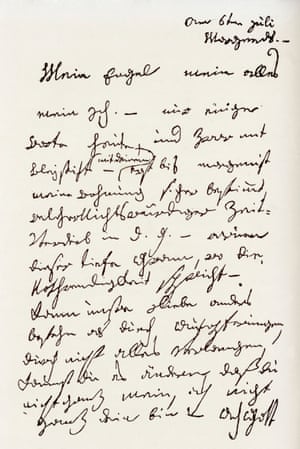 am 6ten Juli
Morgends. —
Mein Engel mein alles
mein Ich. — nur einige
Worte heute, und zwar mit
Bleystift — (mit deinem) erst bis morgen ist
meine Wohnung sicher bestimmt,
welcher Nichtswürdiger Zeit-
verderb in d. g. — warum
dieser tiefe Gram, wo die
Nothwendigkeit spricht —
Kann unsre Liebe anders
bestehn als durch Aufopferungen,
durch nicht alles verlangen,
kannst du es ändern, daß du
nicht ganz mein, ich nicht
ganz dein bin — Ach Gott